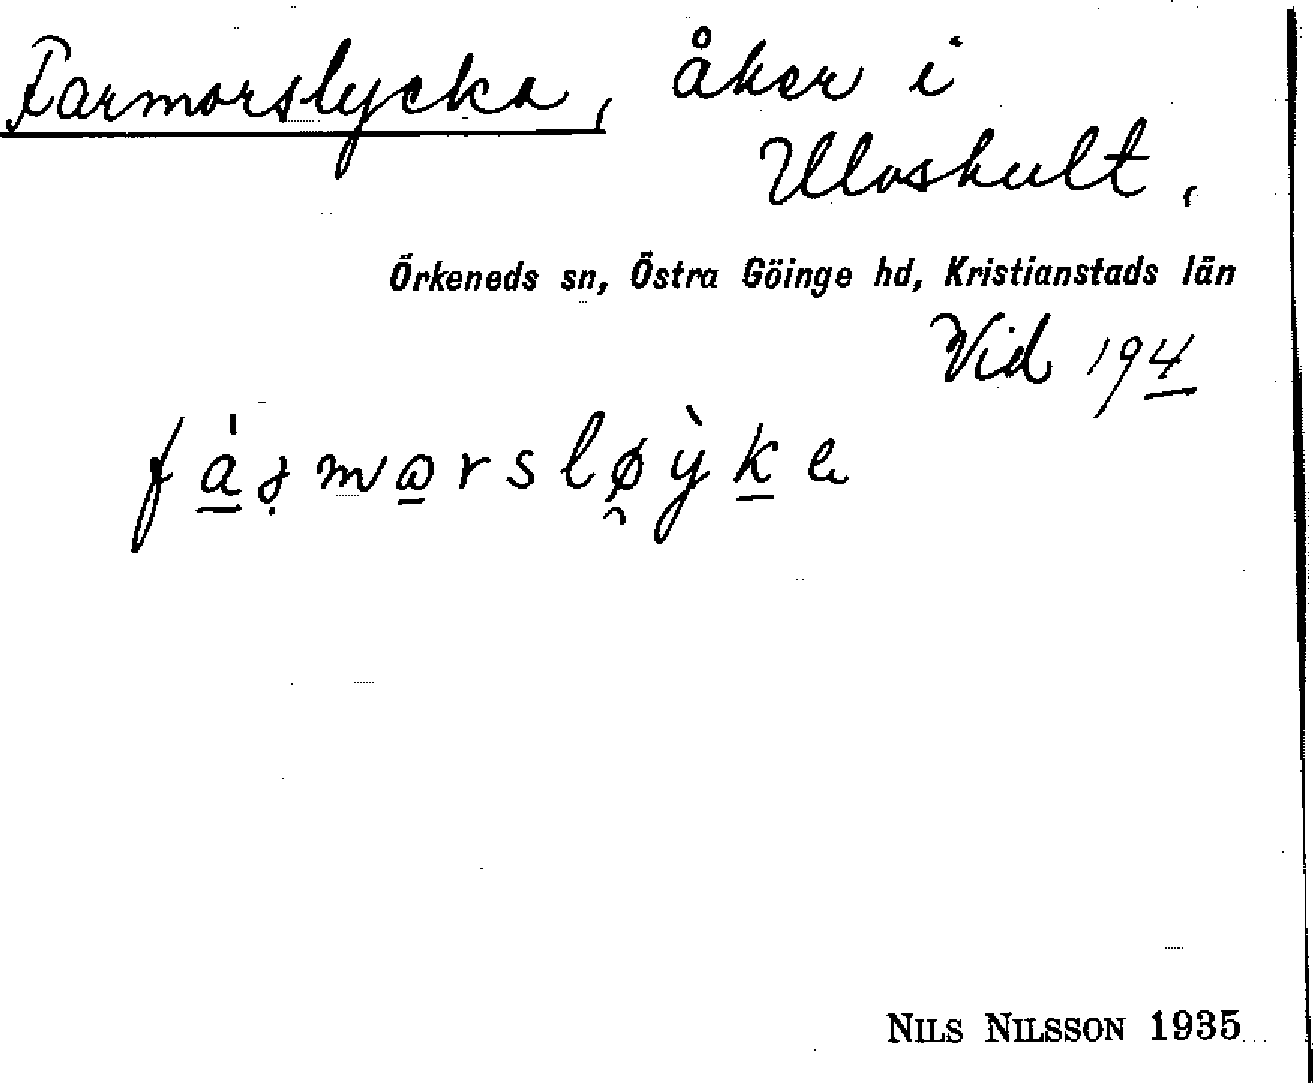 Farmorslycka, åker i
Uloshult,
Örkeneds sn, Östra Göinge hd, Kristianstads län
Vid 194
NILS NILSSON 1935